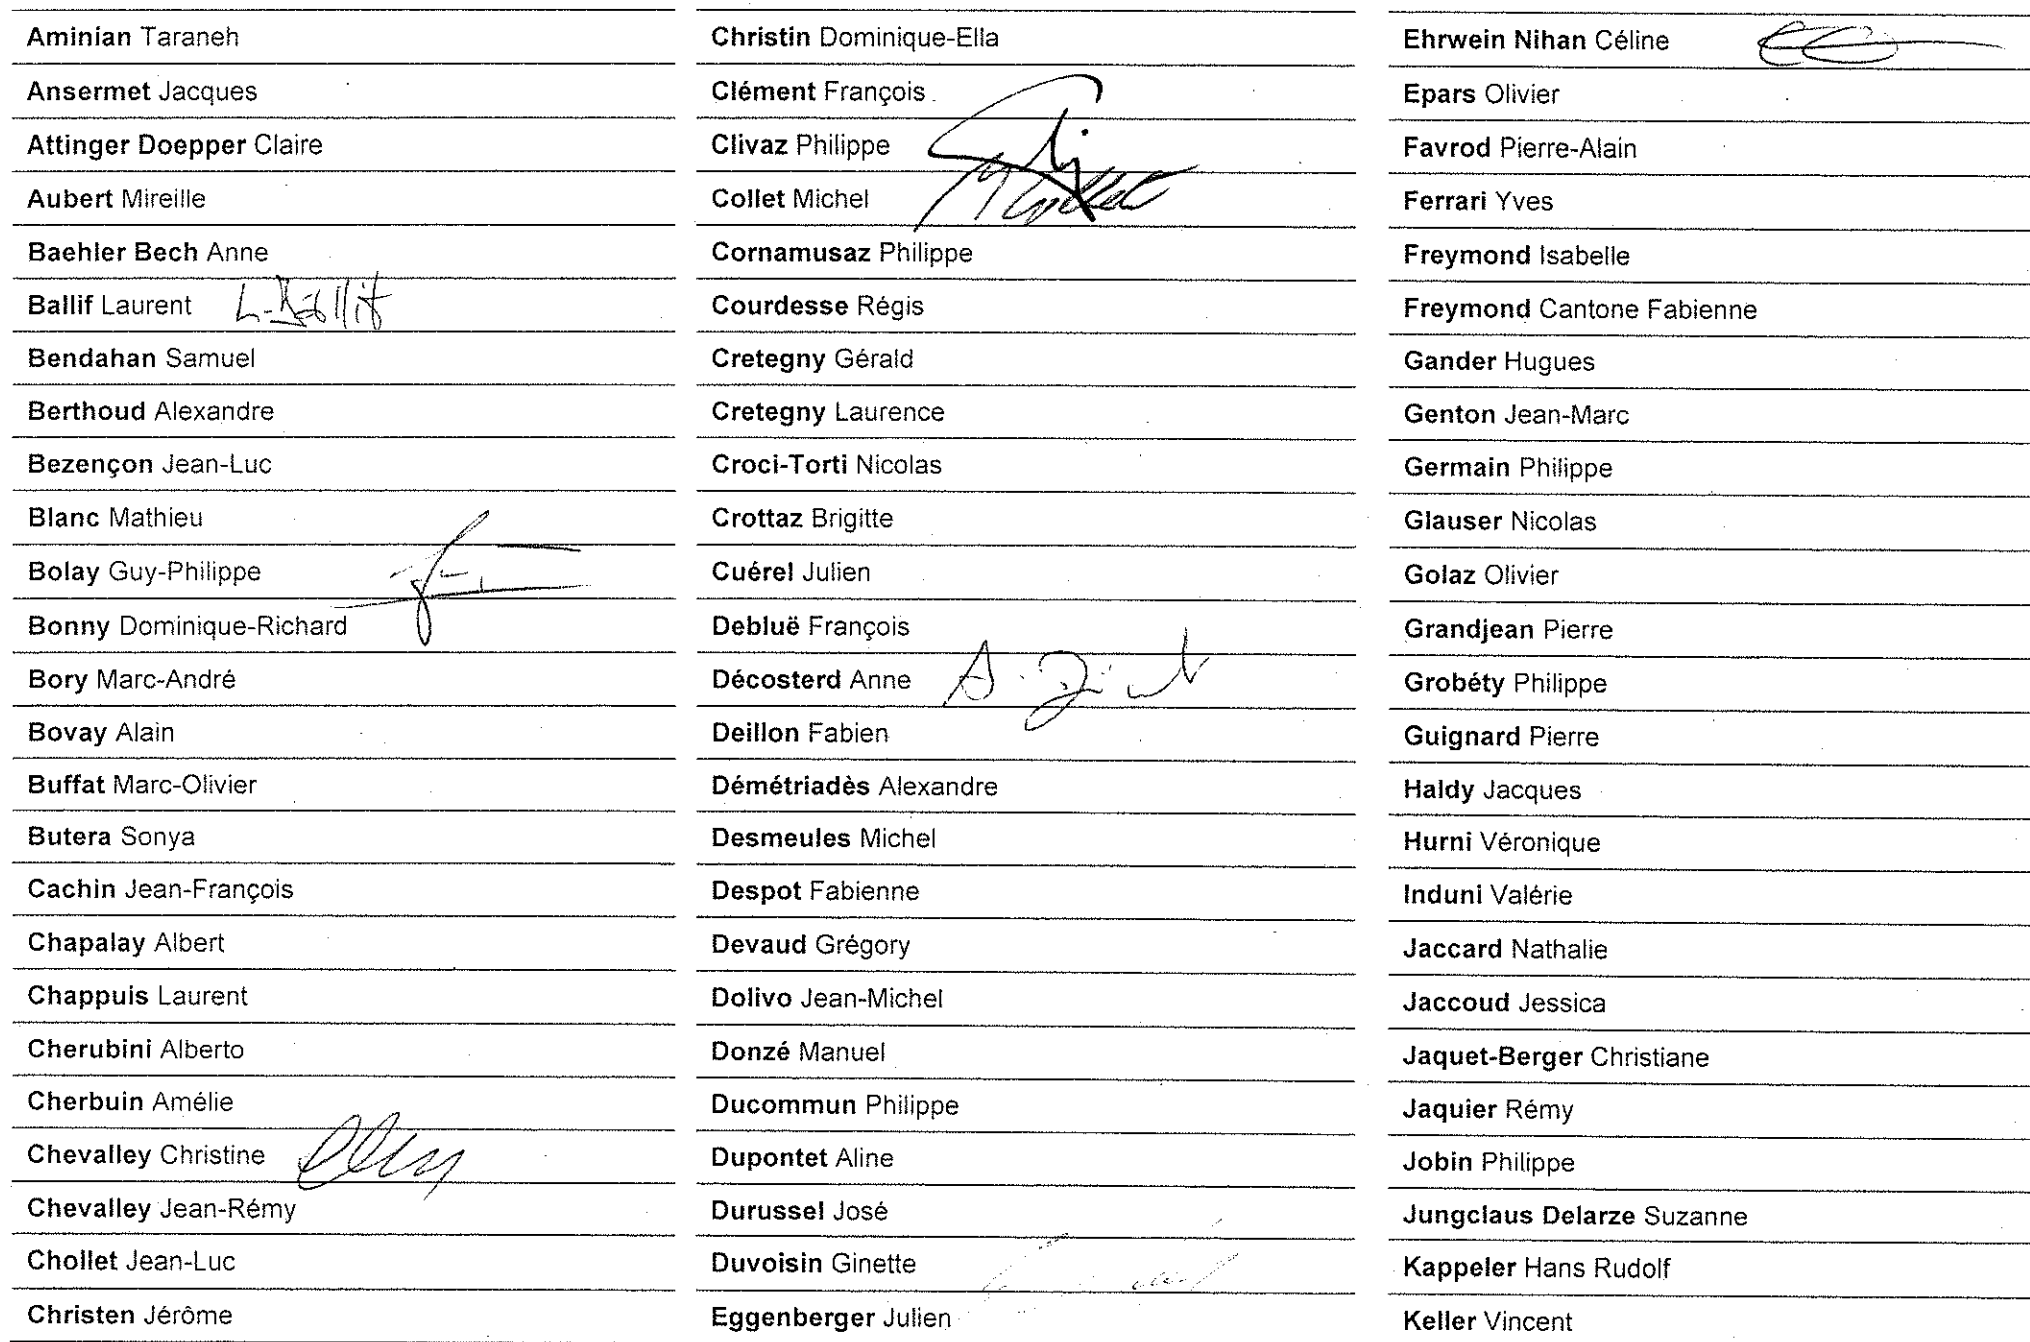 Aminian Taraneh
Ansermet Jacques
Attinger Doepper Claire
Aubert Mireille
Baehler Bech Anne
Ballif Laurent L. Ballif
Bendahan Samuel
Berthoud Alexandre
Bezençon Jean-Luc
Blanc Mathieu
Bolay Guy-Philippe
Bonny Dominique-Richard
Bory Marc-André
Bovay Alain
Buffat Marc-Olivier
Butera Sonya
Cachin Jean-François
Chapalay Albert
Chappuis Laurent
Cherubini Alberto
Cherbuin Amélie
Chevalley Christine
Chevalley Jean-Rémy
Chollet Jean-Luc
Christen Jérôme
Christin Dominique-Ella
Clément François
Clivaz Philippe
Collet Michel MCollet
Cornamusaz Philippe
Courdesse Régis
Cretegny Gérald
Cretegny Laurence
Croci-Torti Nicolas
Crottaz Brigitte
Cuérel Julien
Debluë François
Décosterd Anne
Deillon Fabien
Démétriadès Alexandre
Desmeules Michel
Despot Fabienne
Devaud Grégory
Dolivo Jean-Michel
Donzé Manuel
Ducommun Philippe
Dupontet Aline
Durussel José
Duvoisin Ginette
Eggenberger Julien
Ehrwein Nihan Céline
Epars Olivier
Favrod Pierre-Alain
Ferrari Yves
Freymond Isabelle
Freymond Cantone Fabienne
Gander Hugues
Genton Jean-Marc
Germain Philippe
Glauser Nicolas
Golaz Olivier
Grandjean Pierre
Grobéty Philippe
Guignard Pierre
Haldy Jacques
Hurni Véronique
Induni Valérie
Jaccard Nathalie
Jaccoud Jessica
Jaquet-Berger Christiane
Jaquier Rémy
Jobin Philippe
Jungclaus Delarze Suzanne
Kappeler Hans Rudolf
Keller Vincent